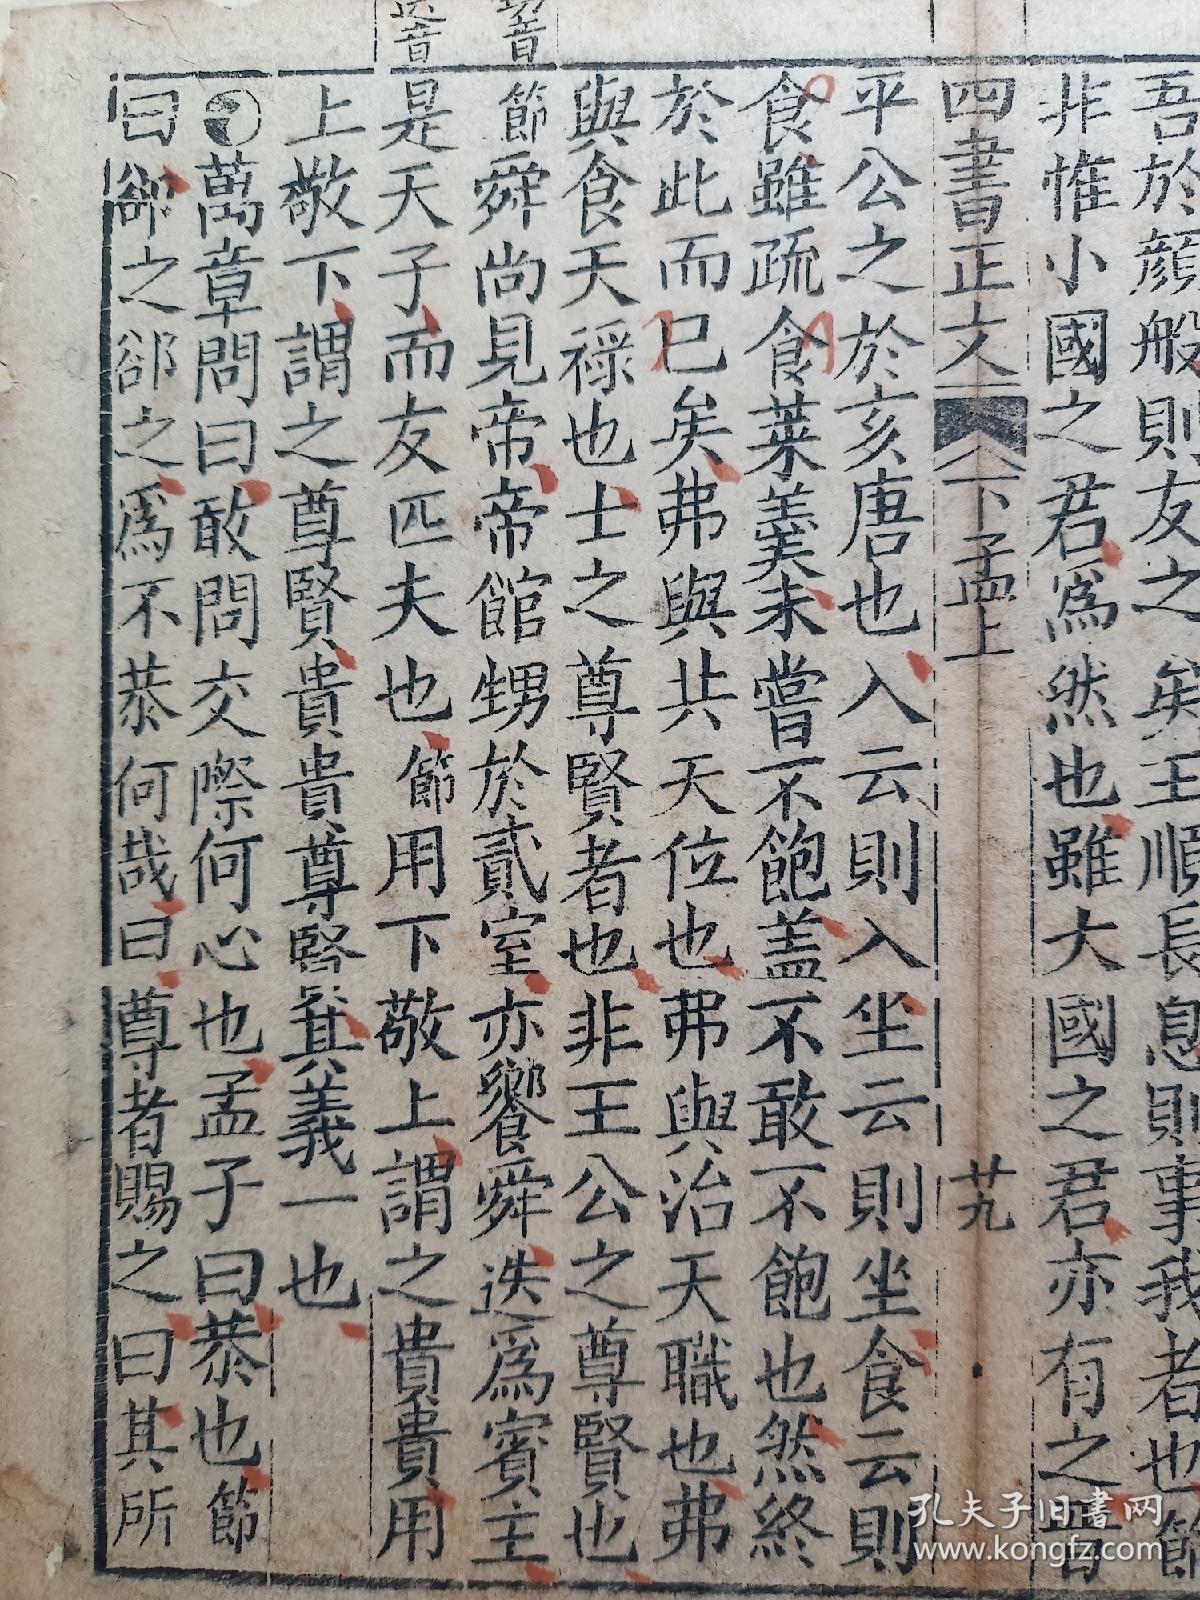 吾於顔般則友之矣王順長息則事我者也節
非惟小國之君爲然也雖大國之君亦有之晋
四書正文 下孟上 廿九
平公之於亥唐也入云則入坐云則坐食云則
食雖疏食菜羮未嘗不飽盖不敢不飽也然終
於此而已矣弗與共天位也弗與治天職也弗
與食天禄也士之尊賢者也非王公之尊賢也
節舜尚見帝帝館甥於貳室亦饗舜迭爲賓主
是天子而友匹夫也節用下敬上謂之貴貴用
上敬下謂之尊賢貴貴尊賢其義一也
萬章問曰敢問交際何心也孟子曰恭也節
曰郤之郤之爲不恭何哉曰尊者賜之曰其所
孔夫子旧书网
www.kongfz.com